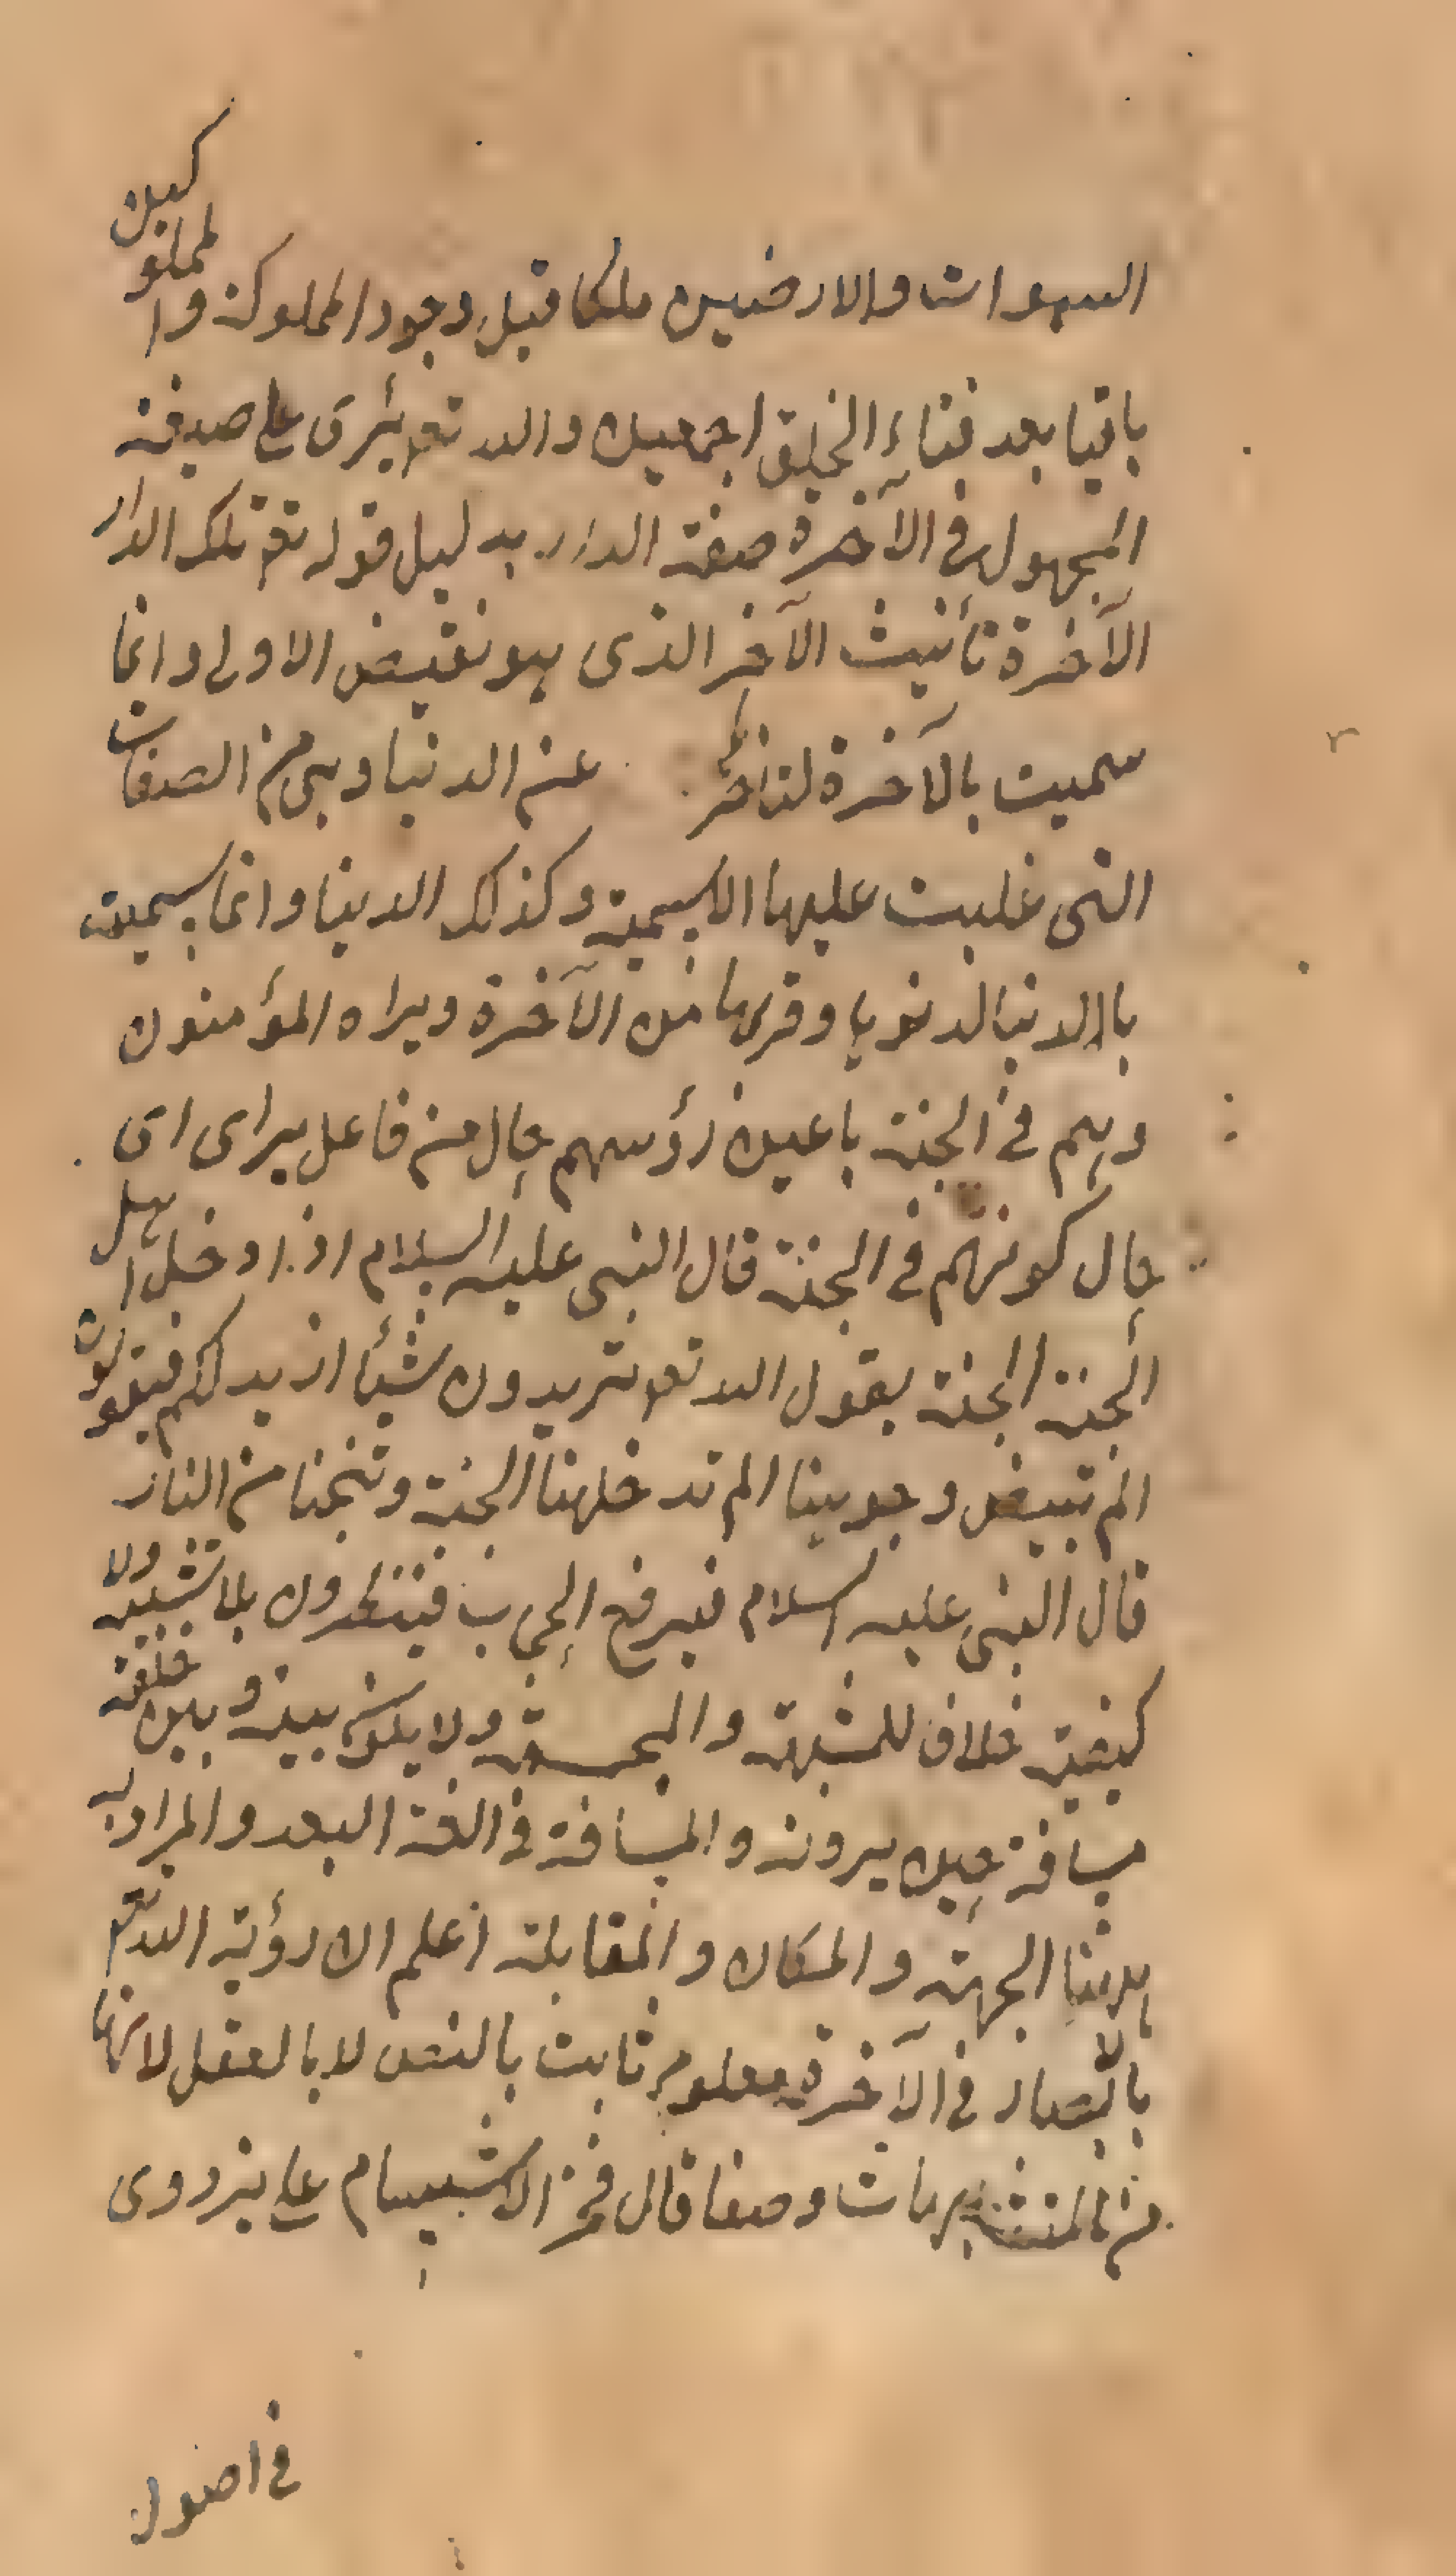 السموات والارضين ملكا قبل وجود المملوكة والمملوكين
باقيا بعد فناء الخلق اجمعين والله تعم يُرى على صيغة
المجهول فى الآخرة صفة الدار بدليل قوله تعم تلك الدار
الآخرة تأنيث الآخر الذى هو نقيض الاول وانما
سميت بالآخرة لتأخرها عن الدنيا وهى من الصفات
التى غلبت عليها الاسمية وكذلك الدنيا وانما سميت
باالدنيا لدنوها وقربها من الآخرة ويراه المؤمنون
وهم فى الجنة باعين رؤسهم حال من فاعل يراى اى
حال كونهم فى الجنة قال النبى عليه السلام اذا دخل اهل
الجنة الجنة يقول الله تعم تريدون شيأ ازيد لكم فيقولون
الم تبيض وجوهنا الم تدخلهنا الجنة وتنجنا من النار
قال النبى عليه السلام فيرفع الحجاب فينظرون بلا تشبيه ولا
كيفية خلاف للمشبهة والمجسمة ولا يكون بينه وبين خلقه
مسافة حين يرونه والمسافة فى الغة البعد والمراد به
ههنا الجهة والمكان والمقابلة اعلم ان رؤية الله تعم
بالابصار فى الآخرة معلوم ثابت بالنص لا بالعقل لانها
من المتشابهات وصفا قال فخر الاسلام على بزدوى
فى اصول